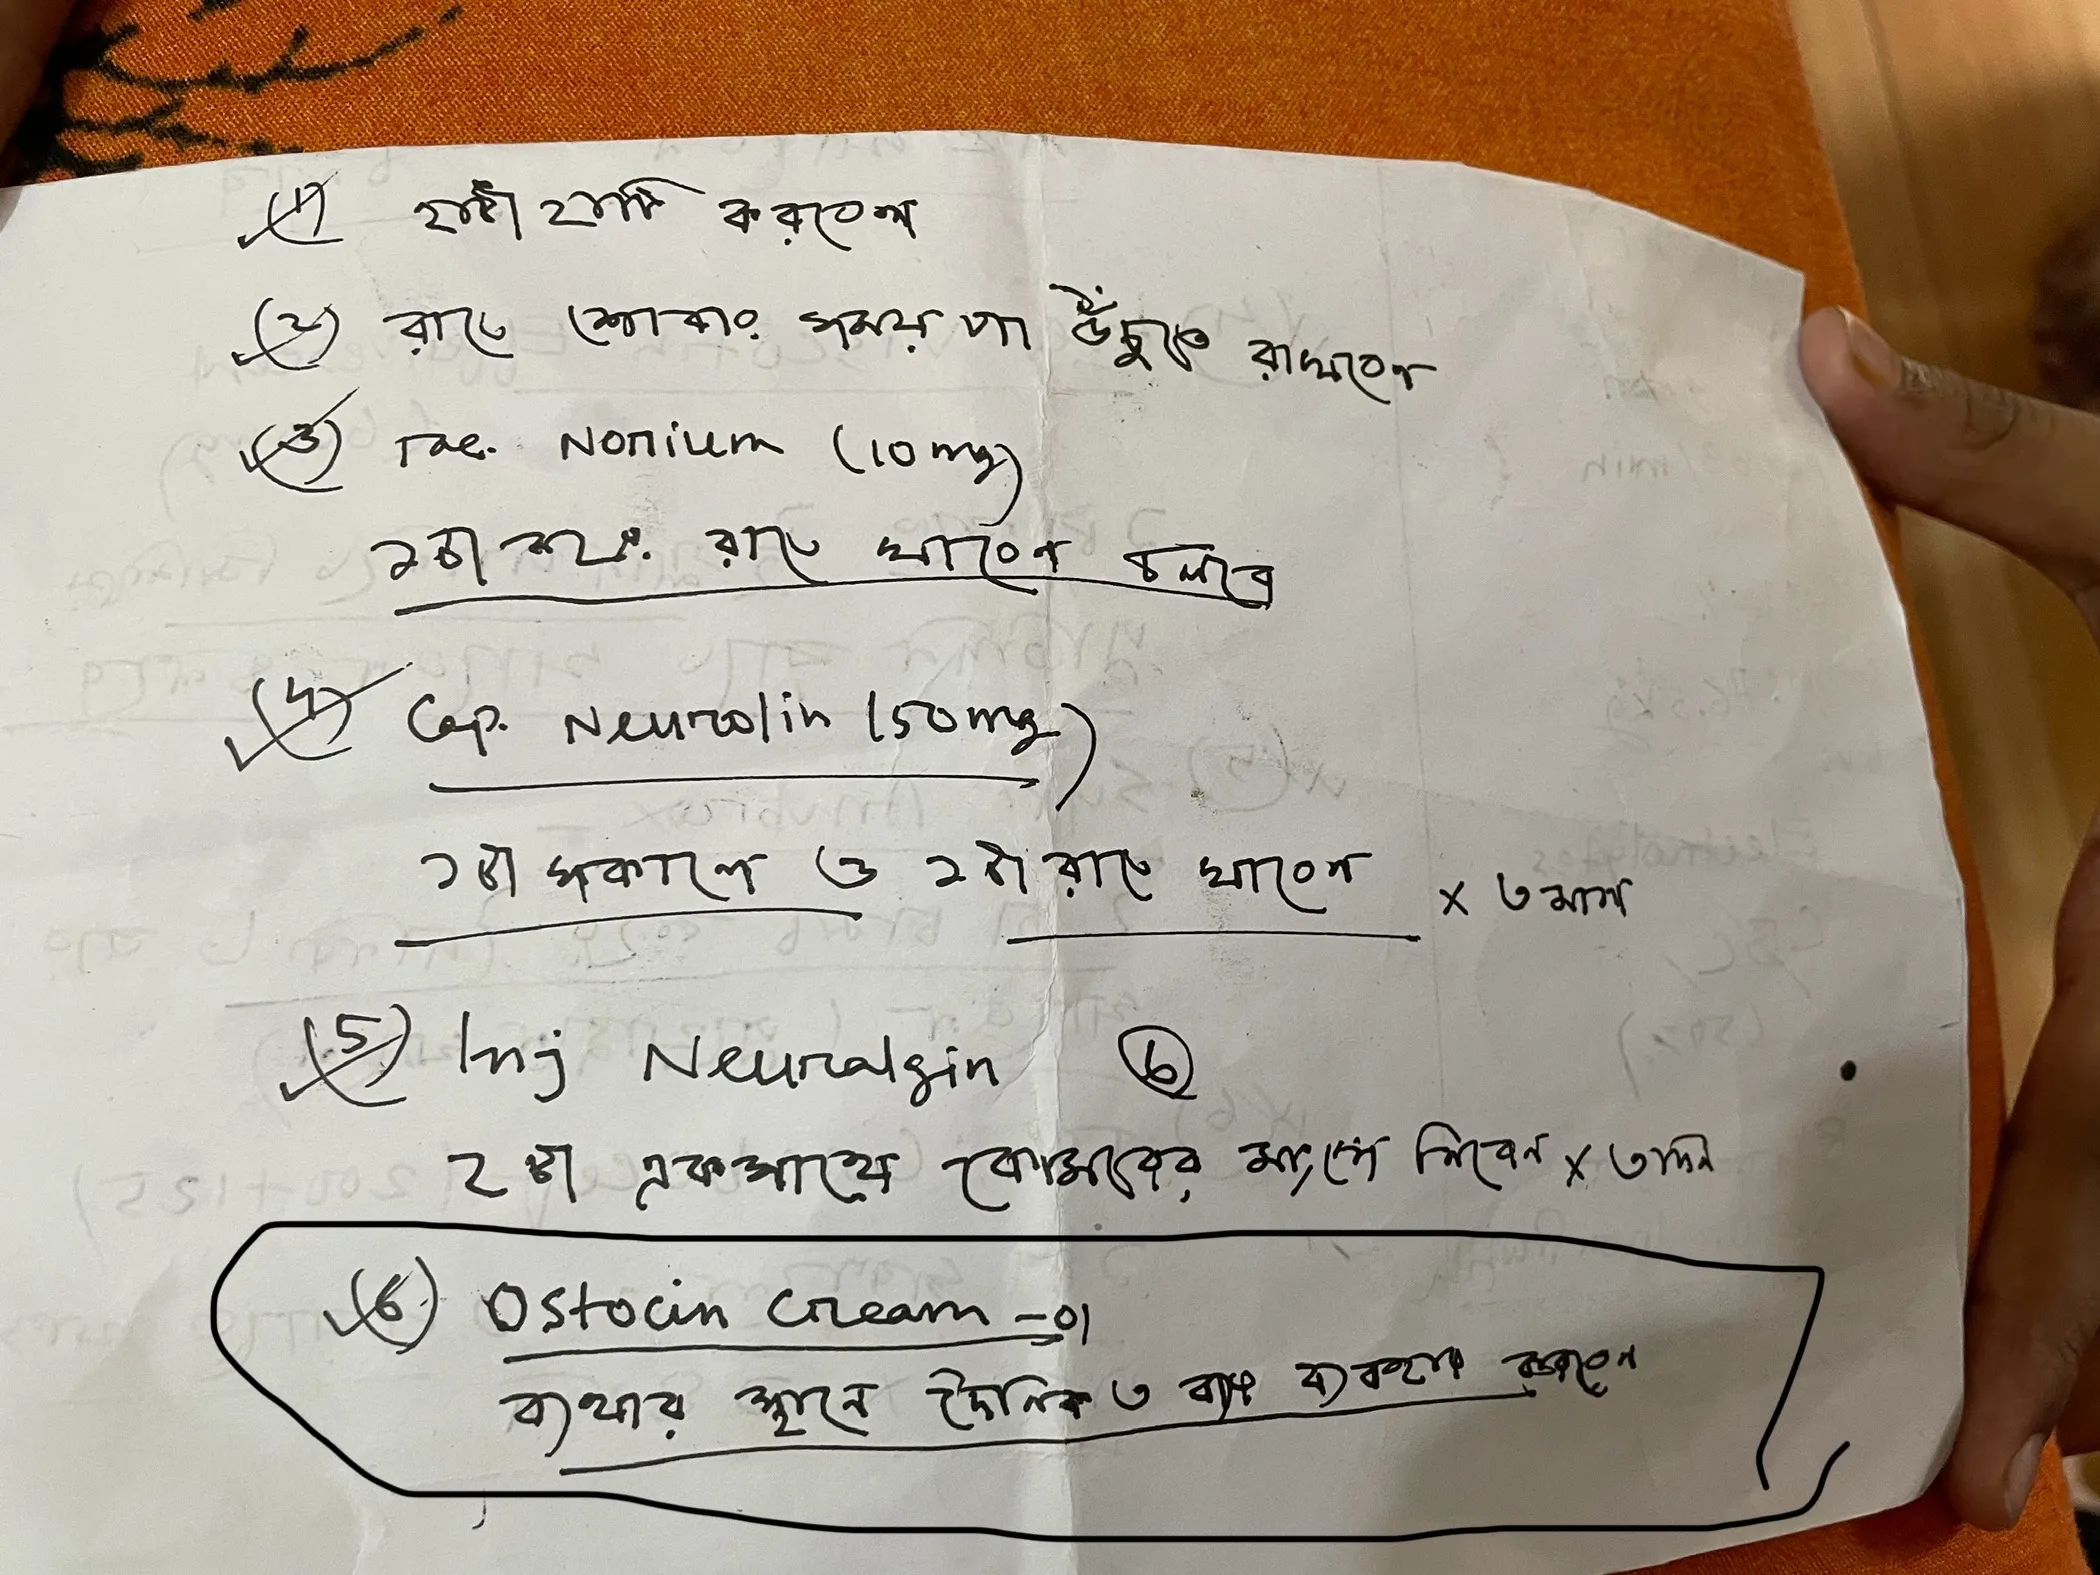 (1) হাটাঁ হাটি করবেন
(2) রাতে শোবার সময় পা উঁচুতে রাখবেন
(3) Tab. Norium (10mg)
১টা করে রাতে খাবেন চলবে
(4) Cap. Neurolin (50mg)
১টা সকালে ও ১টা রাতে খাবেন × ৩ মাস
(5) Inj Neuralgin ⑥
2 টা একসাথে কোমরের মাংসে নিবেন × ৩দিন
(6) Ostocin Cream -01
ব্যথার স্থানে দৈনিক ৩ বার ব্যবহার করবেন